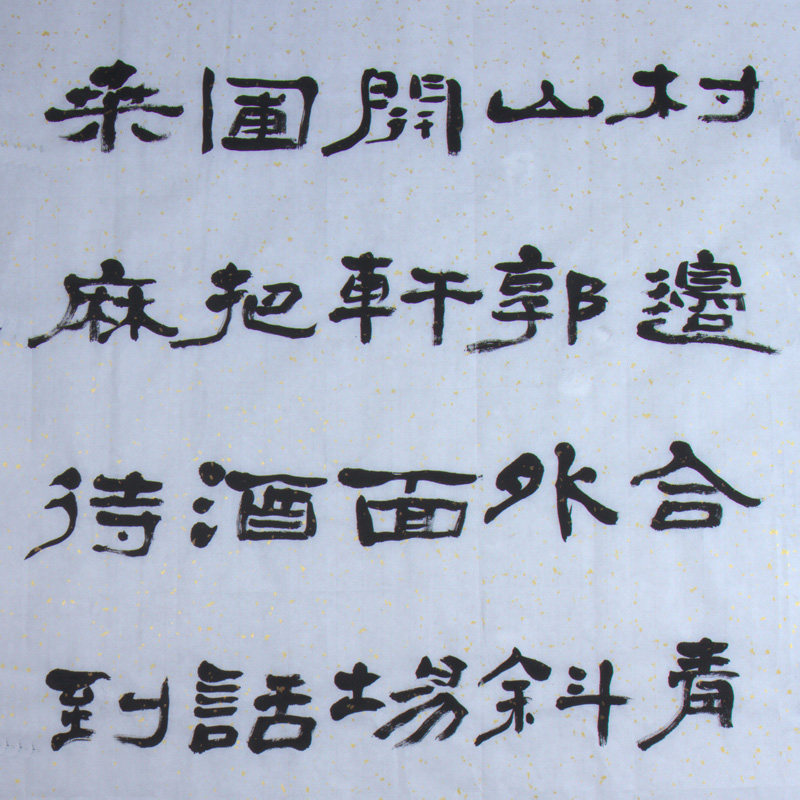 村邊合青
山郭外斜
開軒面場
圃把酒話
桑麻待到